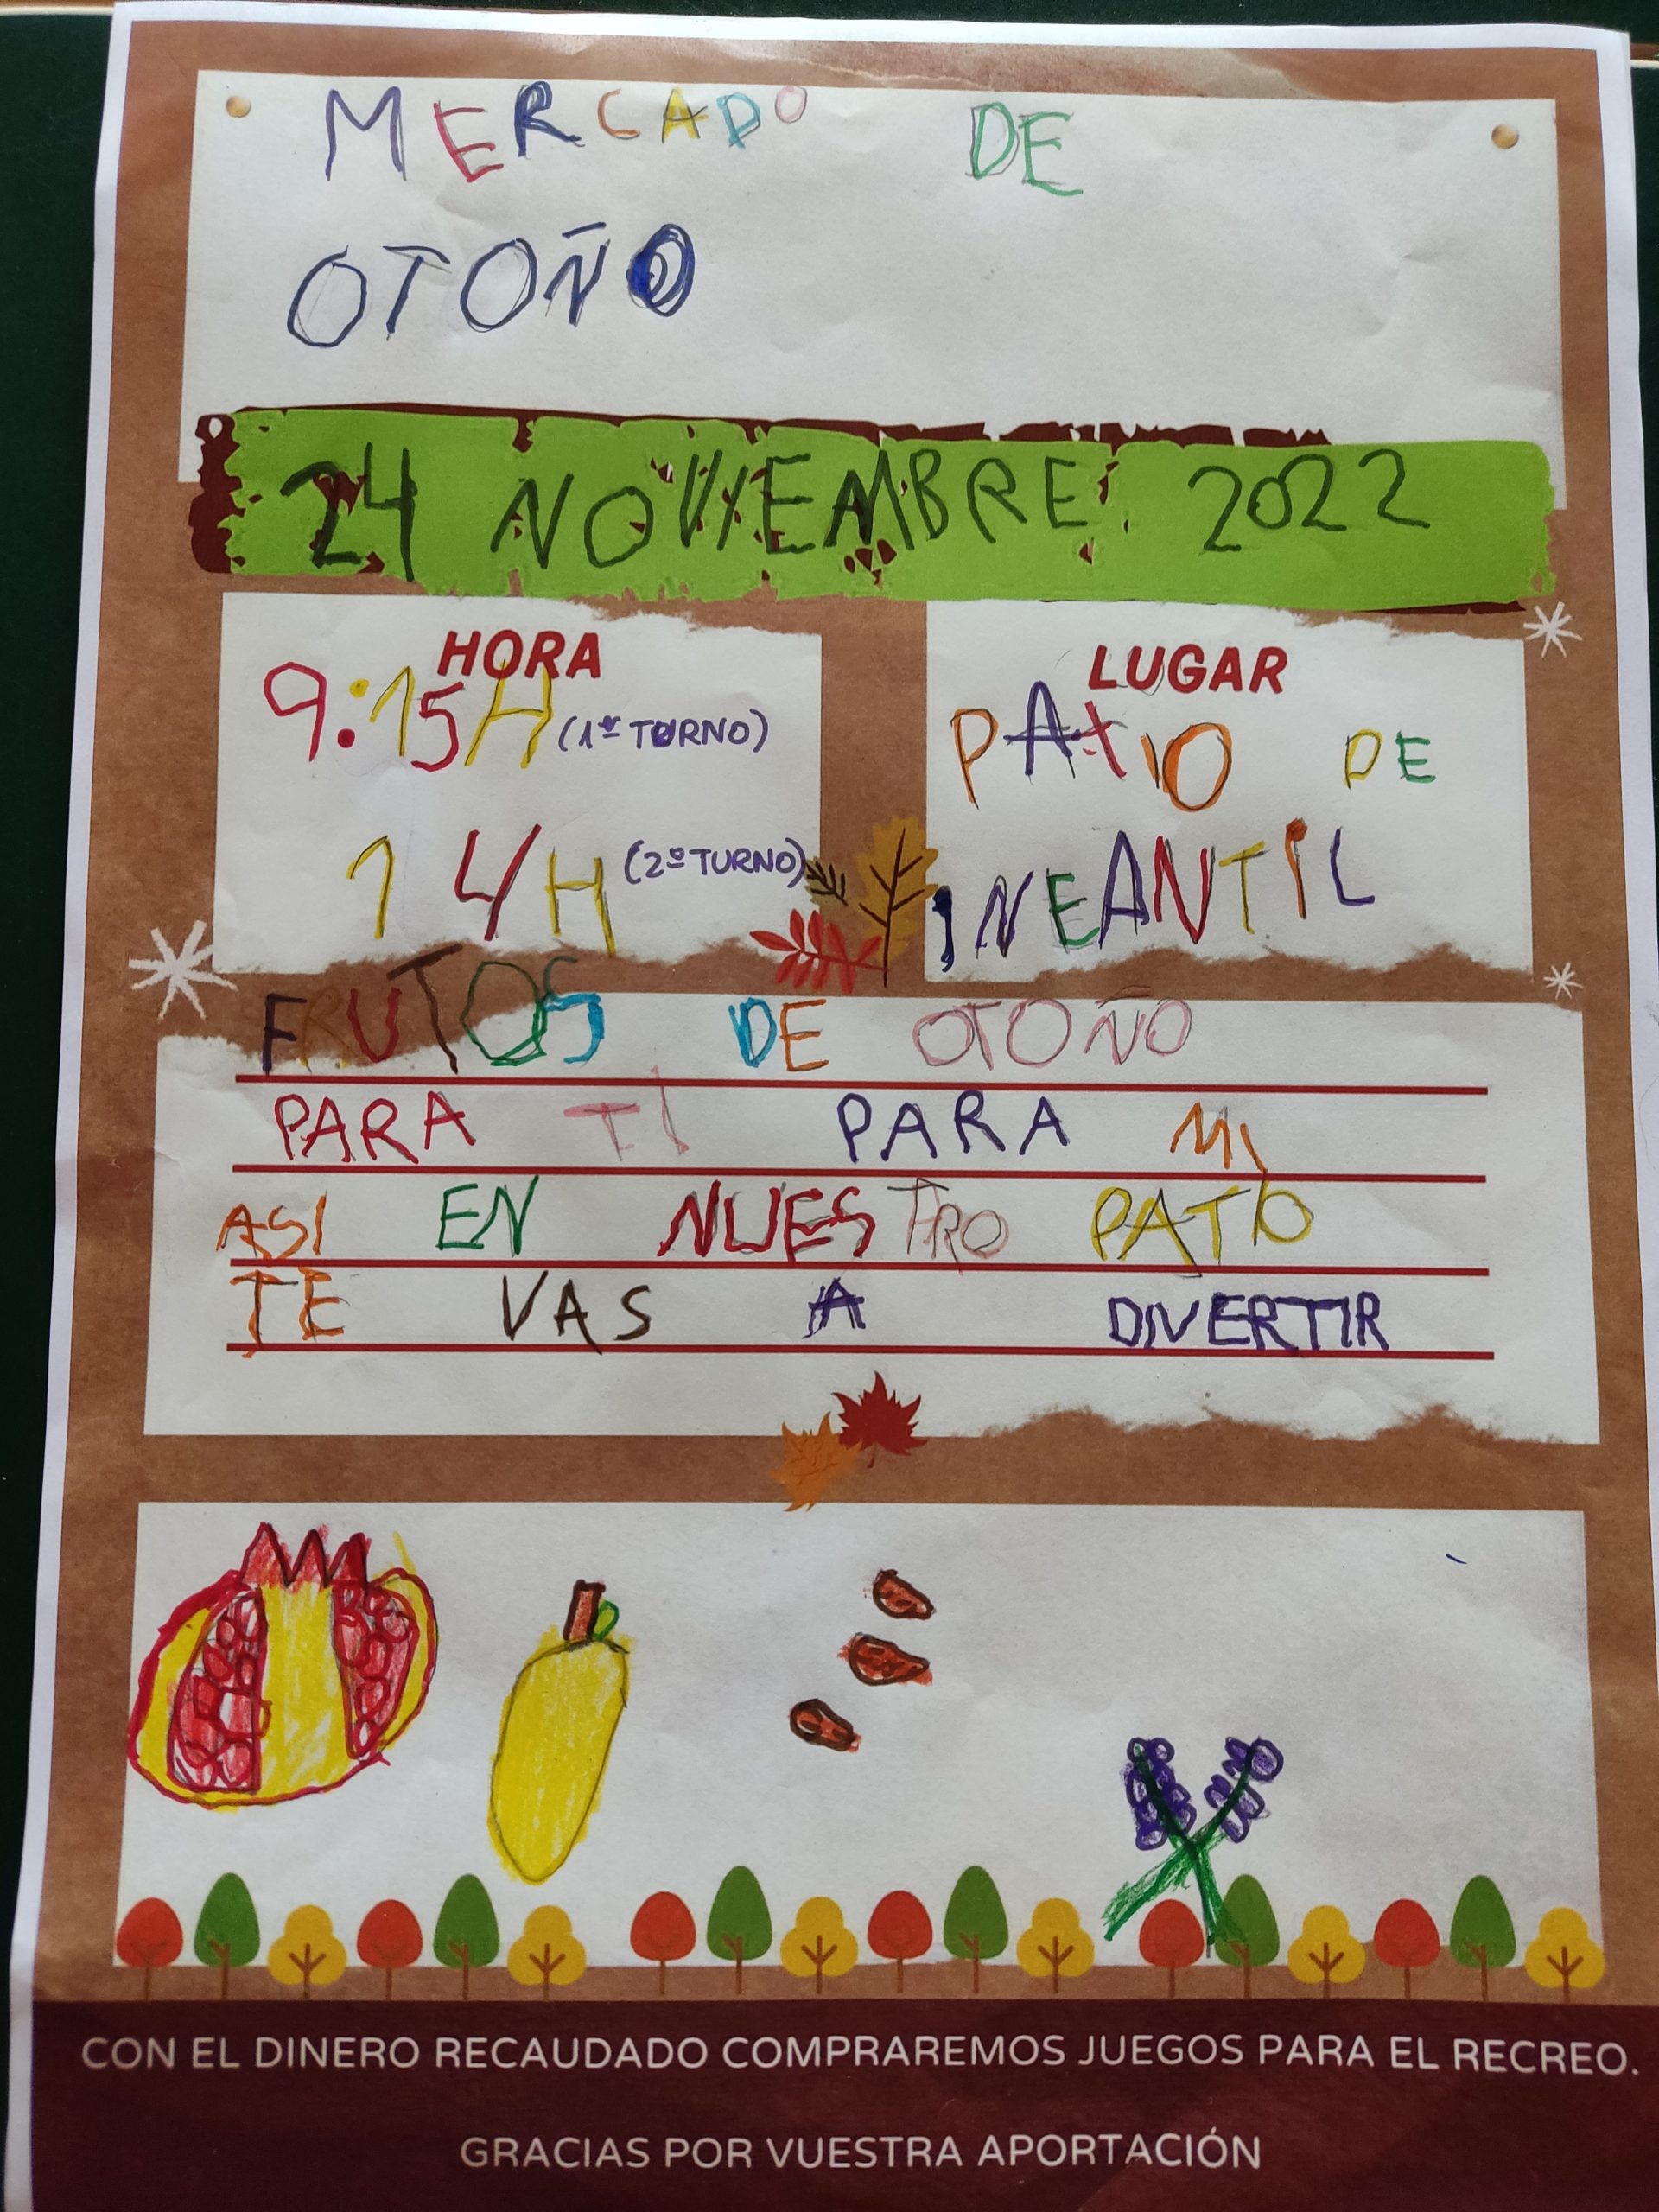 MERCADO DE
OTOÑO
24 NOVIEMBRE 2022
HORA
9:15H (1er TURNO)
14H (2º TURNO)
LUGAR
PATIO DE
INEANTIL
FRUTOS DE OTOÑO
PARA TI PARA MI
ASI EN NUESTRO PATIO
TE VAS A DIVERTIR
CON EL DINERO RECAUDADO COMPRAREMOS JUEGOS PARA EL RECREO.
GRACIAS POR VUESTRA APORTACIÓN